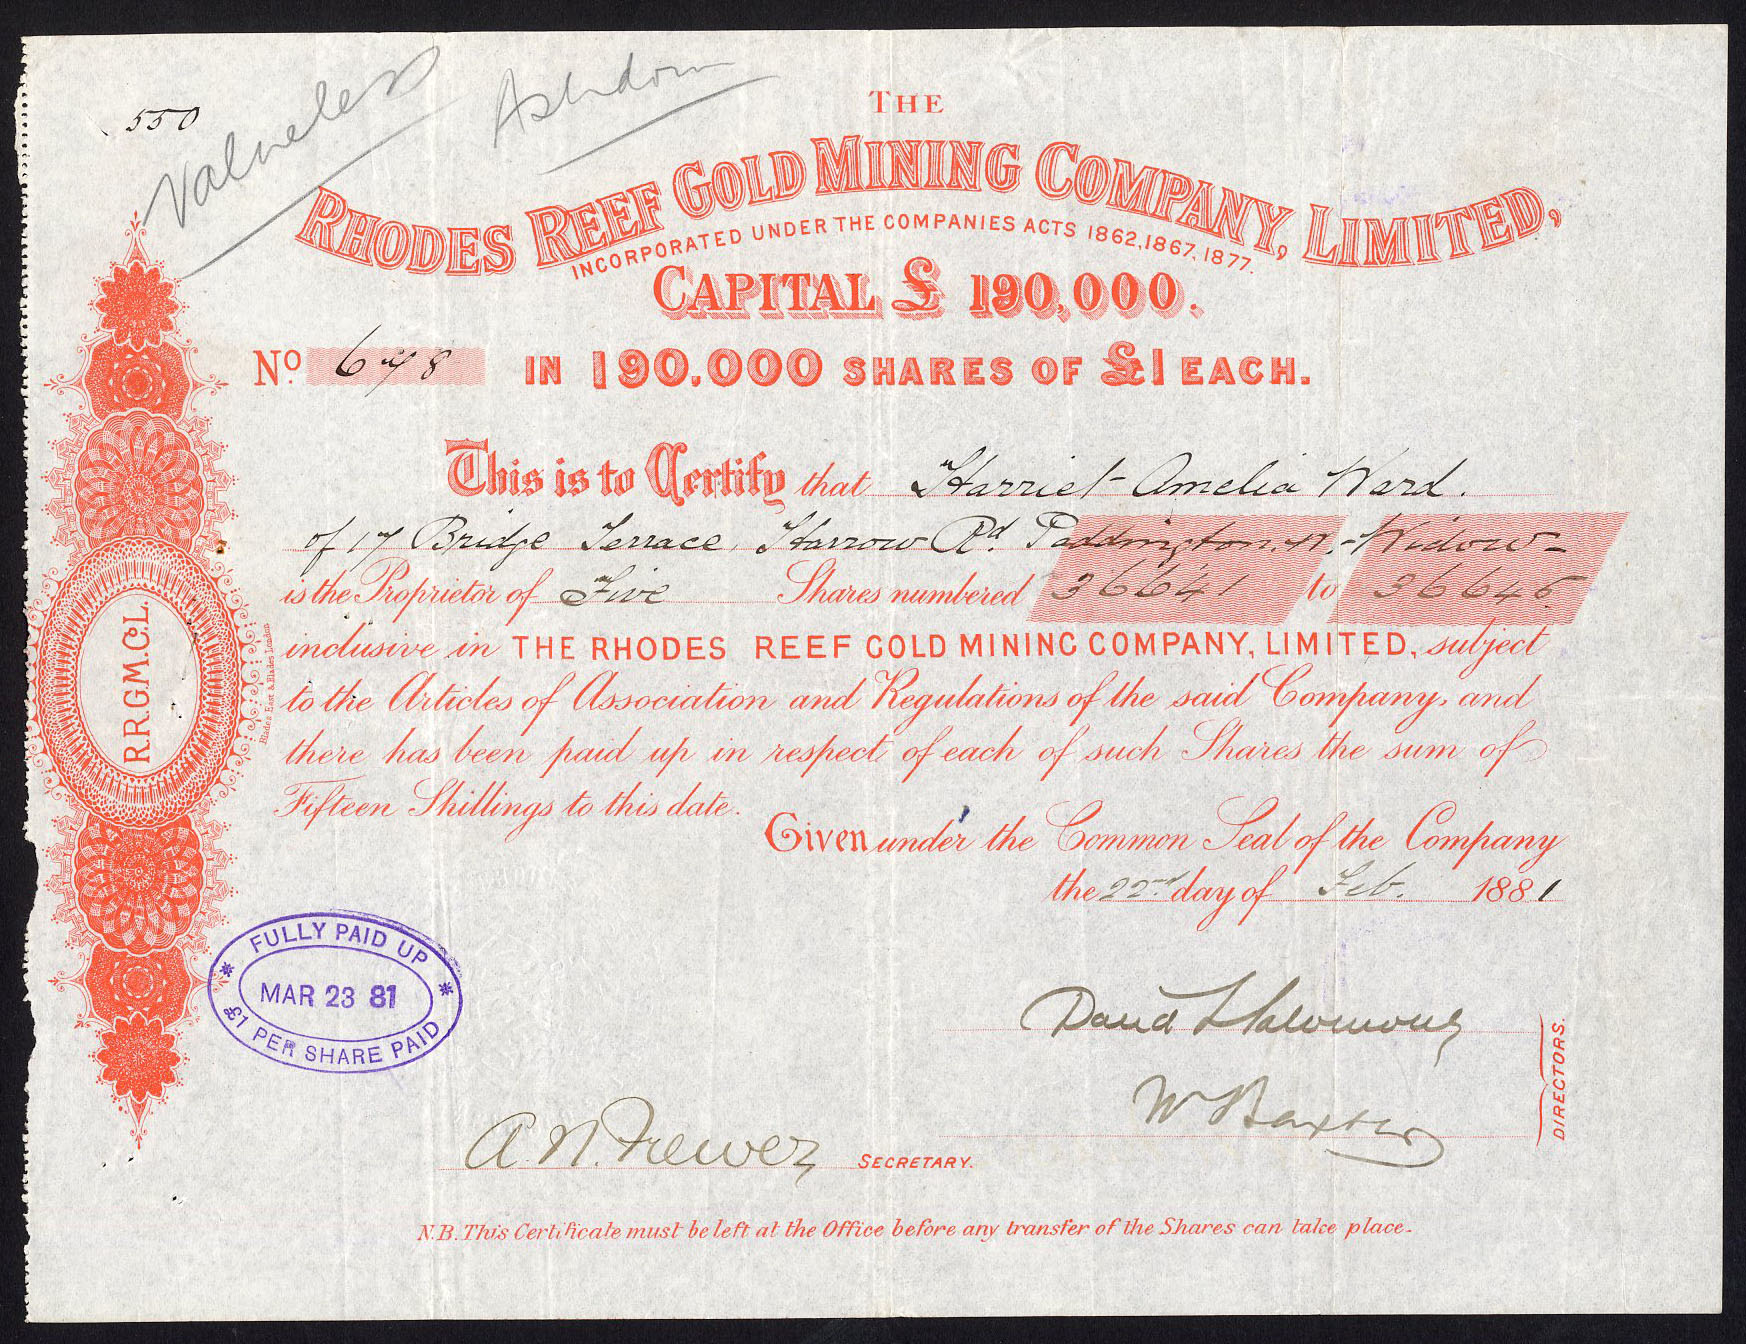 550
Valueless
Ashdown
THE
RHODES REEF GOLD MINING COMPANY, LIMITED,
INCORPORATED UNDER THE COMPANIES ACTS 1862, 1867, 1877.
CAPITAL £ 190,000.
No. 678 IN 190,000 SHARES OF £1 EACH.
This is to Certify that Harriet Amelia Ward.
of 17 Bridge Terrace, Harrow Rd. Paddington. W. - Widow -
is the Proprietor of Five Shares numbered 36641 to 36645.
inclusive in THE RHODES REEF GOLD MINING COMPANY, LIMITED, subject
to the Articles of Association and Regulations of the said Company, and
there has been paid up in respect of each of such Shares the sum of
Fifteen Shillings to this date.
Given under the Common Seal of the Company
the 22nd day of Feb. 1881
R.R.G.M.Co.L.
Blades East & Blades London
FULLY PAID UP
MAR 23 81
£1 PER SHARE PAID
David L Salomons
W Baxter
DIRECTORS.
A. N. Frewer SECRETARY.
N.B. This Certificate must be left at the Office before any transfer of the Shares can take place.